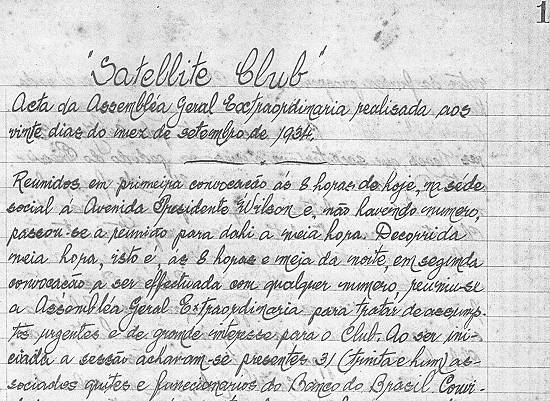 1
"Satellite Club"
Acta da Assembléa Geral Extraordinaria realisada aos
vinte dias do mez de setembro de 1934.
Reunidos em primeira convocacão ás 8 horas de hoje, na séde
social á Avenida Presidente Wilson e, não havendo numero,
passou-se a reunião para dahi a meia hora. Decorrida
meia hora, isto e, ás 8 horas e meia da noite, em segunda
convocacão a ser effectuada com qualquer numero, reuniu-se
a Assembléa Geral Extraordinaria para tratar de assump-
tos urgentes e de grande interesse para o Club. Ao ser ini-
ciada a sessão achavam-se presentes 31 (trinta e hum) as-
sociados quites e funccionarios do Banco do Brasil. Convi-